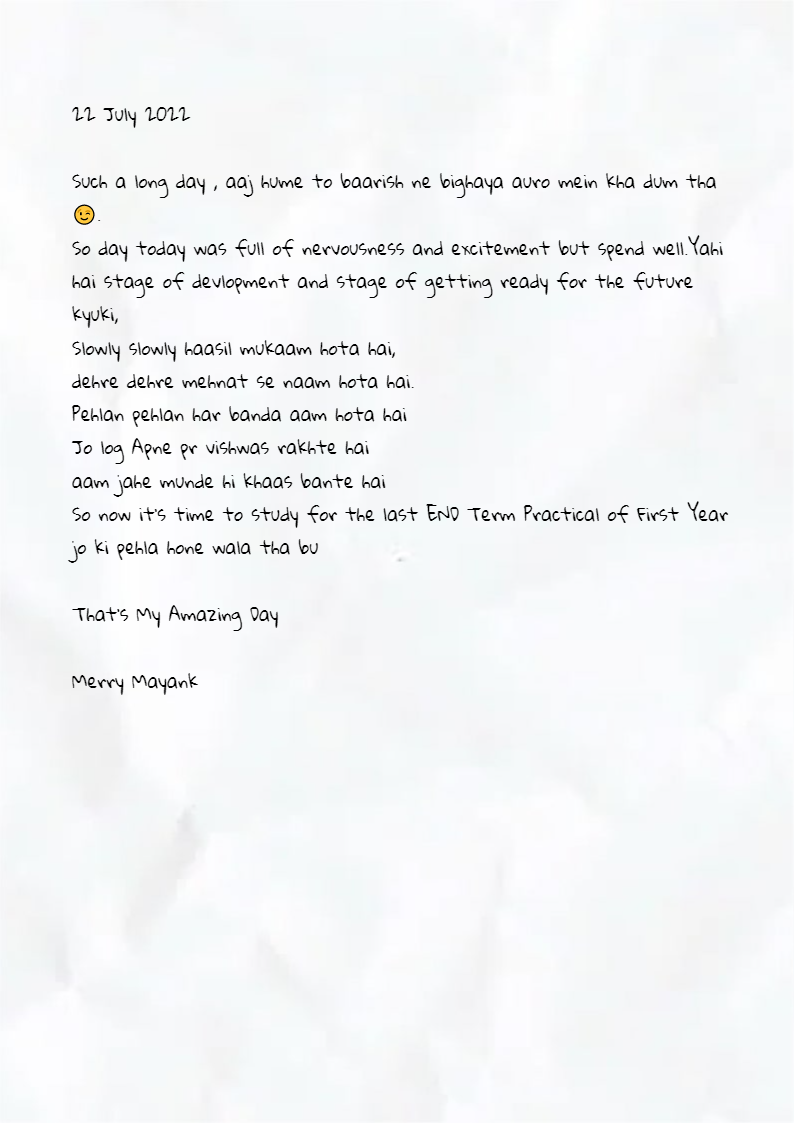 22 July 2022
Such a long day , aaj hume to baarish ne bighaya auro mein kha dum tha
😉.
So day today was full of nervousness and excitement but spend well.Yahi
hai stage of devlopment and stage of getting ready for the future
kyuki,
Slowly slowly haasil mukaam hota hai,
dehre dehre mehnat se naam hota hai.
Pehlan pehlan har banda aam hota hai
Jo log Apne pr vishwas rakhte hai
aam jahe munde hi khaas bante hai
So now it's time to study for the last END Term Practical of First Year
jo ki pehla hone wala tha bu
That's My Amazing Day
Merry Mayank